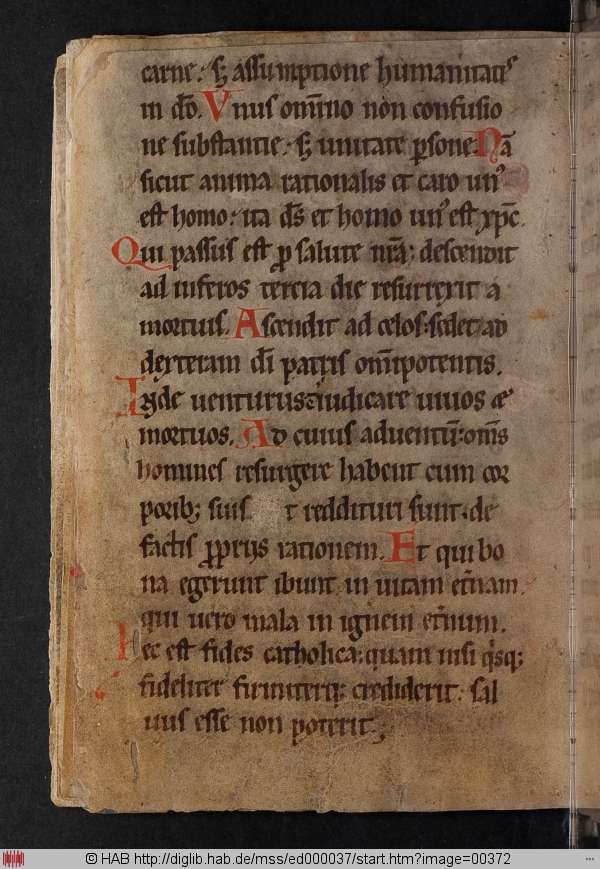 carne. s; assumptione humanitatis
in dō. Vnus omīno non confusio
ne substantie. s; unitate psone. Nā
sicut anima rationalis et caro un᷒
est homo. ita ds̄ et homo un᷒ est xp̄c
Qui passus est p salute nrā. descendit
ad inferos tercia die resurrexit a
mortuis. Ascendit ad celos. sedet ad
dexteram dī patris omīpotentis.
Inde uenturus iudicare uiuos
mortuos. Ad cuius aduentū. oms̄
homines resurgere habent cum cor
porib; suis t reddituri sunt. de
factis pprijs rationem. Et qui bo
na egerunt ibunt in uitam et̄nam
qui uero mala in ignem et̄num.
Hec est fides catholica. quam nisi qisq;
fideliter firmiterq; crediderit. sal
uus esse non poterit.
© HAB http://diglib.hab.de/mss/ed000037/start.htm?image=00372